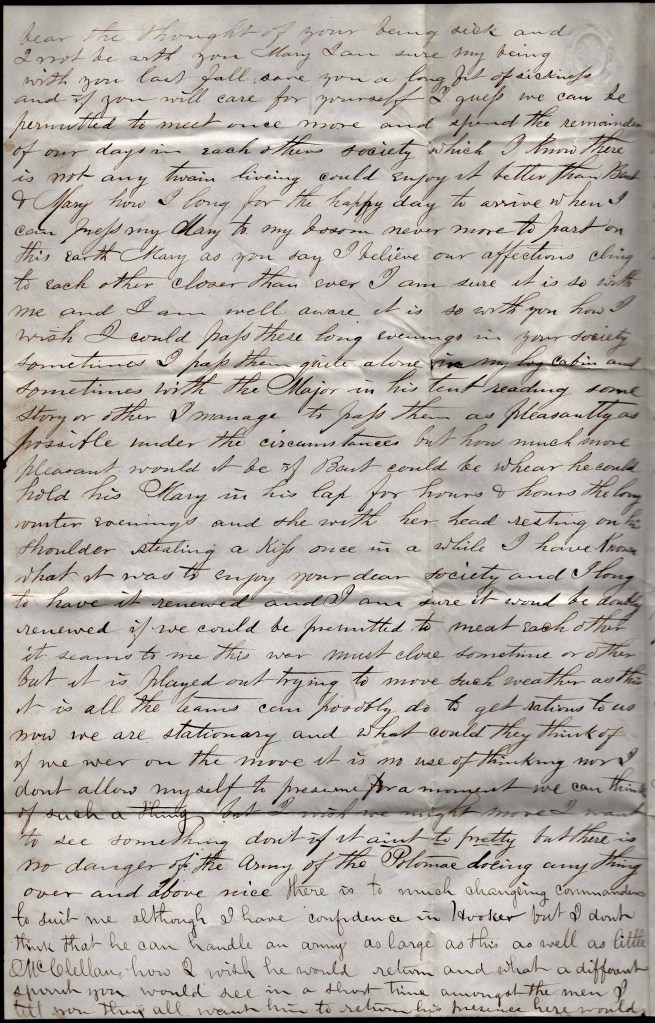 bear the thought of your being sick and
I not be with you Mary I am sure my being
with you last fall save you a long fit of sickness
and if you will care for yourself I guess we can be
permitted to meet once more and spend the remainder
of our days in each others society which I know there
is not any twain liveing could enjoy it better than Bart
& Mary how I long for the happy day to arrive when I
can press my Mary to my bosom never more to part on
this earth Mary as you say I believe our affections cling
to each other closer than ever I am sure it is so with
me and I am well aware it is so with you how I
wish I could pass these long evenings in your society
sometimes I pass them quite alone in my log cabin and
sometimes with the Major in his tent reading some
story or other I manage to pass them as pleasantly as
possible under the circumstances but how much more
pleasant would it be if Bart could be whear he could
hold his Mary in his lap for hours & hours the long
winter evenings and she with her head resting on his
shoulder stealing a kiss once in a while I have known
what it was to enjoy your dear society and I long
to have it renewed and I am sure it woud be doubly
renewed if we could be premitted to meat each other
it seams to me this war must close sometime or other
but it is played out trying to move such weather as this
it is all the teams can possbly do to get rations to us
now we are stationary and what could they think of
if we wer on the move it is no use of thinking nor I
dont allow myself to presume for a moment we can think
of such a thing but I wish we might move I want
to see something don if it aint to pretty but there is
no danger of the Army of the Potomac doeing any thing
over and above nice there is to much changing commanders
to suit me although I have confidence in Hooker but I dont
think that he can handle an army as large as this as well as little
McClellan, how I wish he would return and what a different
spirit you would see in a short time amongst the men I
tell you they all want him to return his presence here would